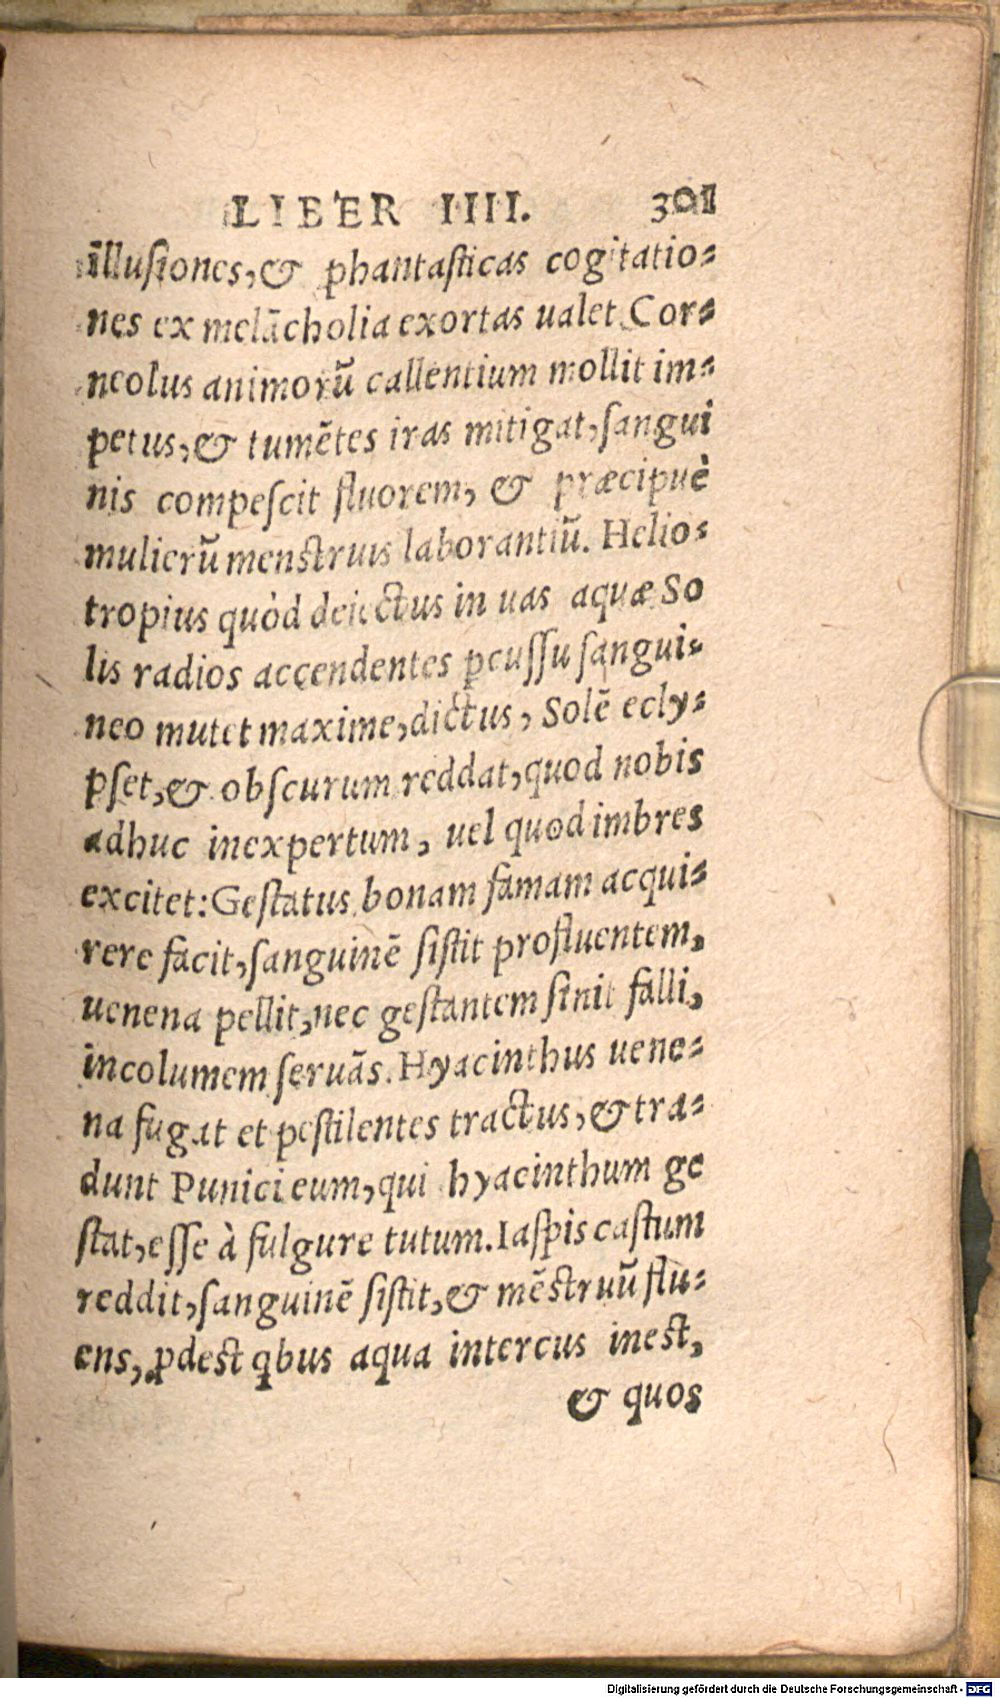 LIBER IIII. 301
illusiones, & phantasticas cogitatio-
nes ex melācholia exortas ualet. Cor-
neolus animorū callentium mollit im-
petus, & tumētes iras mitigat, sangui
nis compescit fluorem, & præcipuè
mulierū menstruis laborantiū. Helio-
tropius quòd deiectus in uas aquæ So
lis radios accendentes pcussu sangui-
neo mutet maxime, dictus, Solē ecly-
pset, & obscurum reddat, quod nobis
adhuc inexpertum, uel quod imbres
excitet: Gestatus bonam famam acqui-
rere facit, sanguinē sistit profluentem,
uenena pellit, nec gestantem sinit falli,
incolumem seruās. Hyacinthus uene-
na fugat et pestilentes tractus, & tra-
dunt Punici eum, qui hyacinthum ge
stat, esse à fulgure tutum. Iaspis castum
reddit, sanguinē sistit, & mēstruū flu-
ens, pdest qbus aqua intercus inest,
& quos
Digitalisierung gefördert durch die Deutsche Forschungsgemeinschaft - DFG